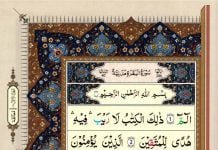 سُورَةُ الْبَقَرَةِ مَدَنِيَّةٌ
بِسْمِ اللّٰهِ الرَّحْمٰنِ الرَّحِيْمِ
الٓمّٓ ۚ ﴿١﴾ ذٰلِكَ الْكِتٰبُ لَا رَيْبَ ۛ فِيْهِ ۛ
هُدًى لِّلْمُتَّقِيْنَ ۙ ﴿٢﴾ الَّذِيْنَ يُؤْمِنُوْنَ